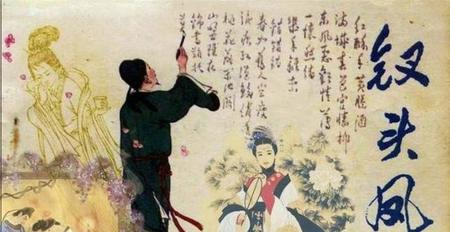 钗头凤
红酥手 黄縢酒
满城春色宫墙柳
东风恶 欢情薄
一怀愁绪
几年离索
错错错
春如旧 人空瘦
桃花落 闲池阁
山盟虽在
锦书难托